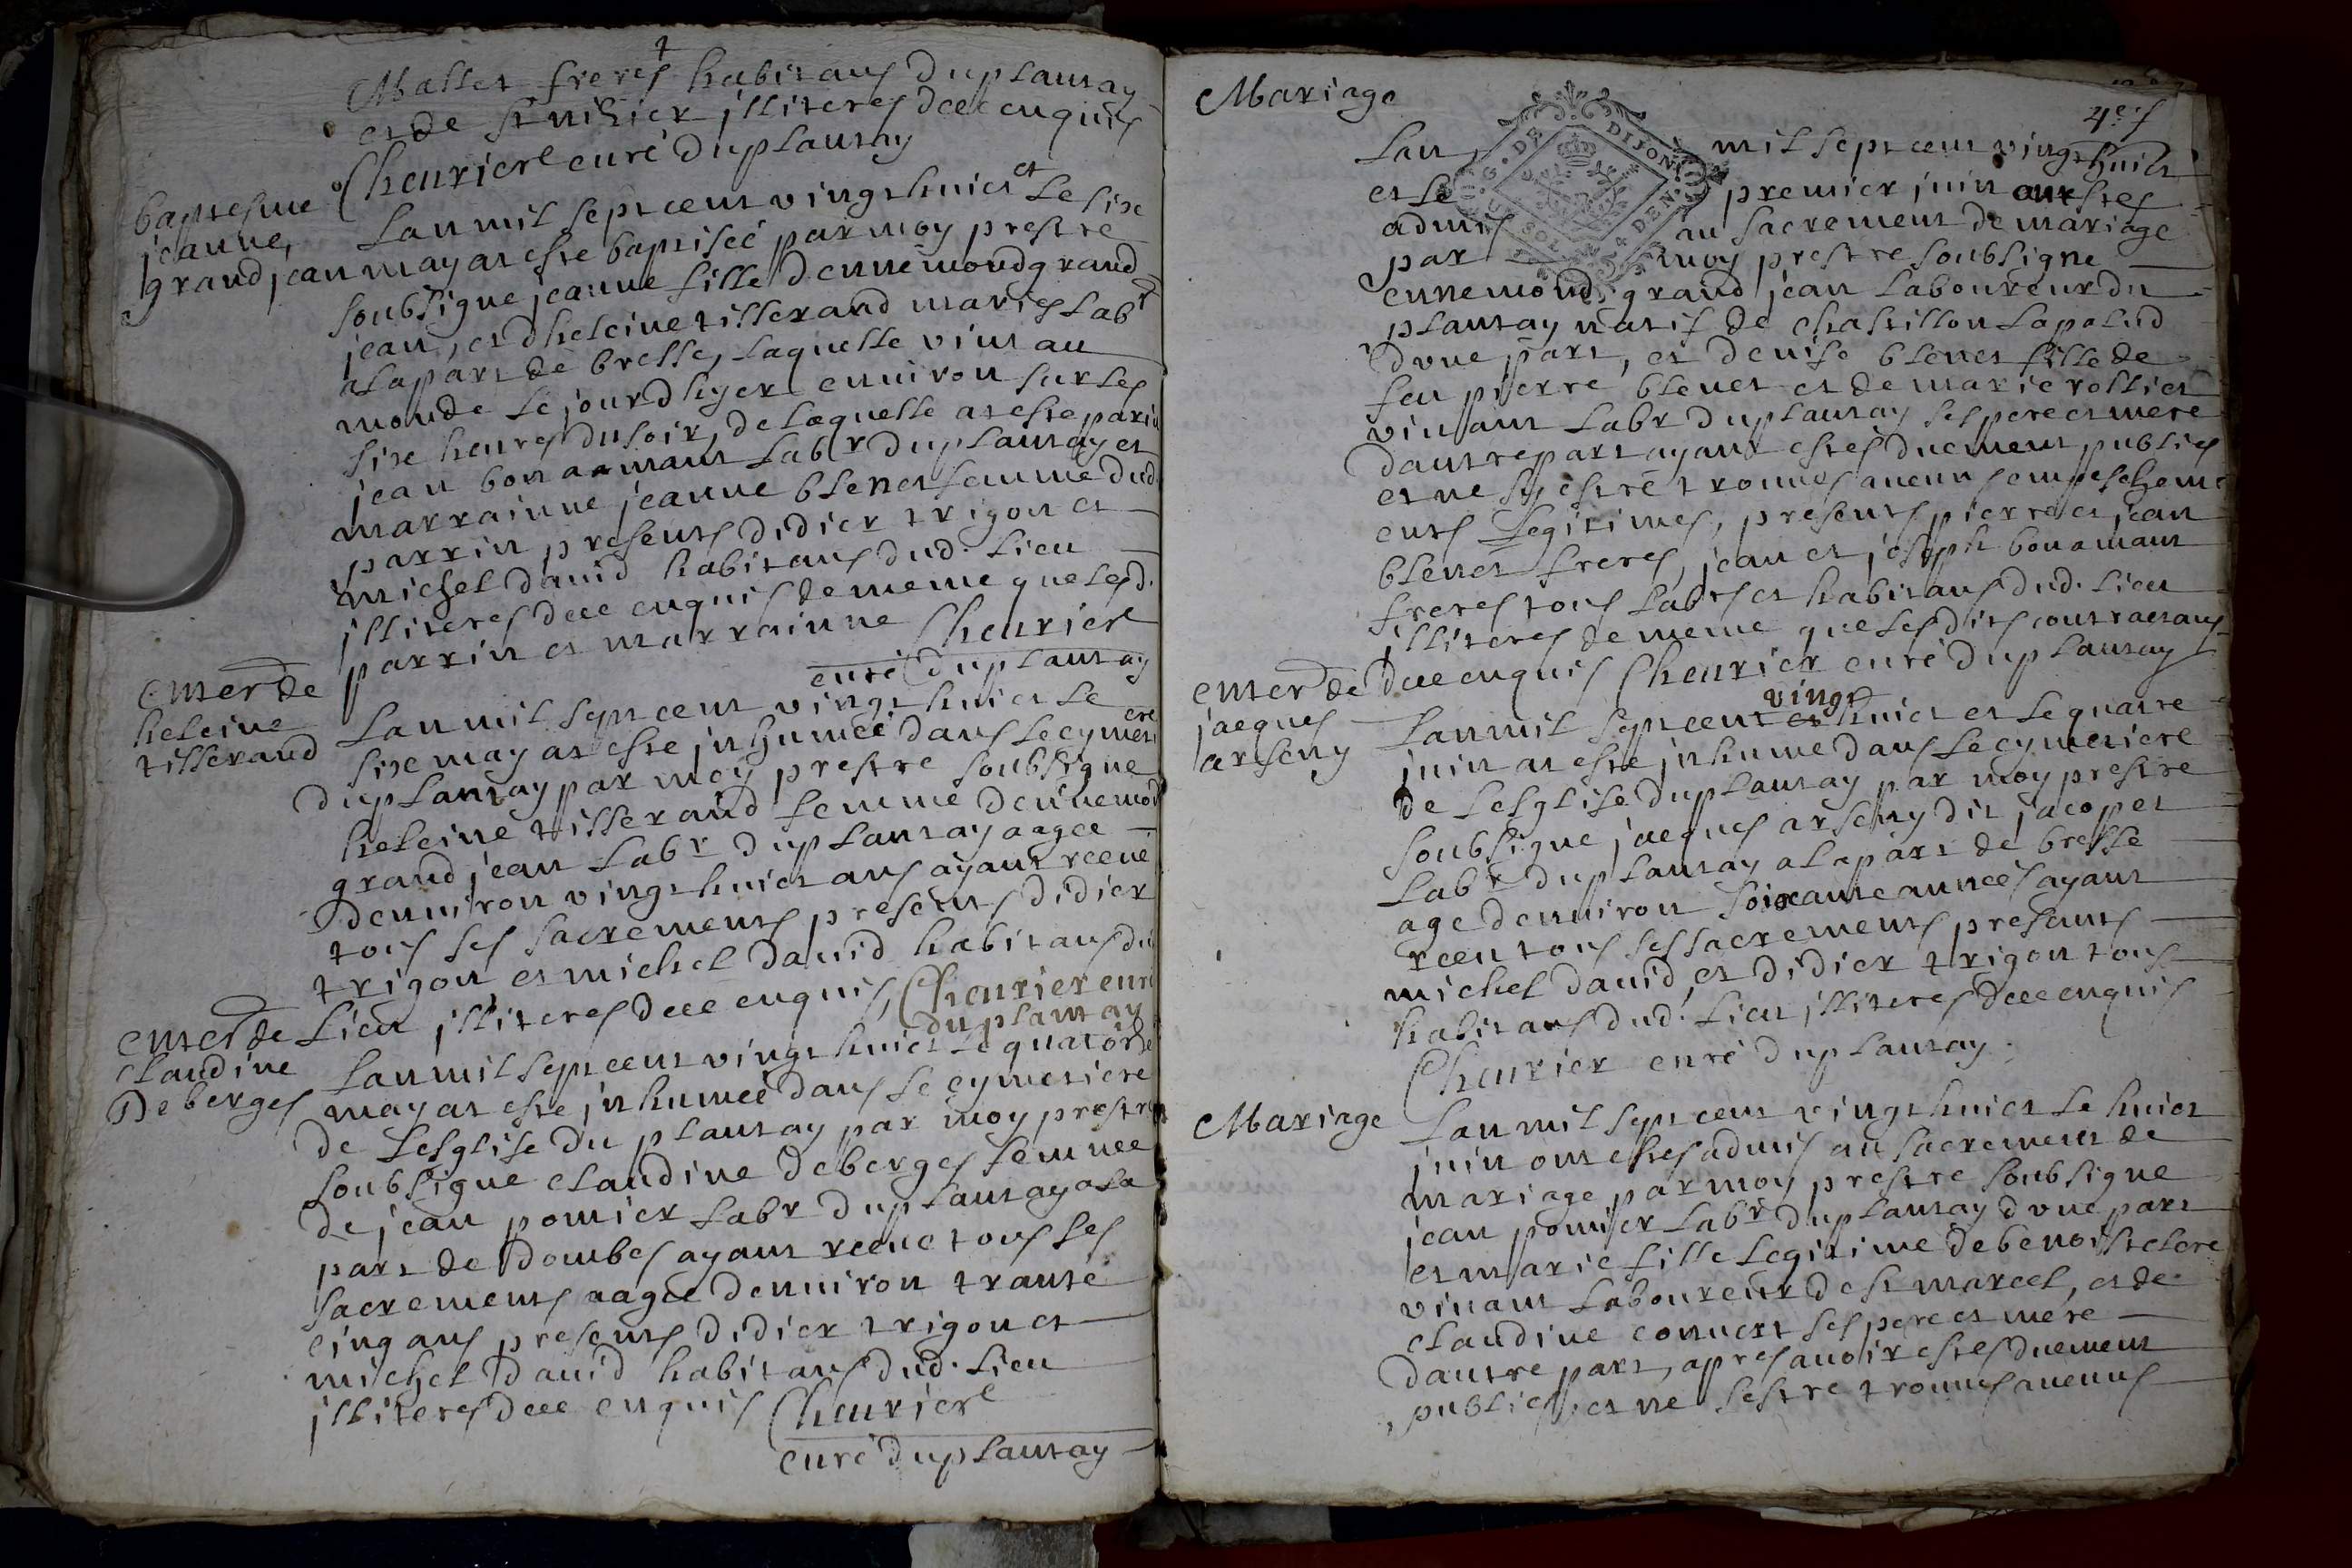 Mallet freres habitans du plantay
et de st nizier illiteres dee enquis
Cheurier curé du plantay
baptesme
jeanne
grand jean
Lan mil sept cent vingt huict et le six
may at este baptiseé par moy prestre
soubsigne jeanne fille dennemond grand
jean, et dheleine tisserand maries labr
a la part de bresse, laquelle vint au
monde le jourdhyer enuiron sur les
six heures du soir, de laquelle at este parin
jean bon amant labr du plantay et
marrainne jeanne blenet femme dud
parrin presents didier trigon et
michel dauid habitans dud. lieu
illiteres dee enquis de meme que lesd.
parrin et marrainne Cheurier
curé du plantay
enterde
heleine
tisserand
Lan mil sept cent vingt huict le
six may at este inhumeé dans le cymetiere
du plantay par moy prestre soubsigne
heleine tisserand femme dennemond
grand jean labr du plantay aageé
denuiron vingt huict ans ayant receue
tous ses sacrements presents didier
trigon et michel dauid habitans du
lieu illiteres dee enquis, Cheurier curé
du plantay
enterde
claudine
Deberges
Lan mil sept cent vingt huict le quatorde
may at este inhumeé dans le cymetiere
de lesglise du plantay par moy prestre
soubsigne claudine deberges femmee
de jean pomier labr du plantay a la
part de dombes ayant receue tous ses
sacrements aageé denuiron trante
cinq ans presents didier trigon et
michel dauid habitans dud. lieu
illiteres dee enquis Cheurier
curé du plantay
Mariage
G. DE DIJON
SOL 4 DEN
Lan mil sept cent vingt huict
et le premier juin ont estes
admis au sacrement de mariage
par moy prestre soubsigne
ennemond grand jean laboureur du
plantay natif de chastillon lapalud
dune part, et denise blenet fille de
feu pierre blenet et de marie rollier
viuant labr du plantay ses pere et mere
dautre part ayant estes duement publies
et ne sy estre trouues aucuns empeschem
ents legitimes, presents pierre et jean
blenet freres, jean et joseph bonamant
freres tous labrs et habitans dud. lieu
illiteres de meme que lesdits contractans
dee enquis Cheurier curé du plantay
enterde
jacques
arseny
Lan mil sept cent vingt huict et le quatre
juin at este inhume dans le cymetiere
de lesglise du plantay par moy prestre
soubsigne jacques arseny dit jacopet
labr du plantay a la part de bresse
age denuiron soixante anneés ayant
receu tous ses sacrements presants
michel dauid, et didier trigon tous
habitans dud. lieu illiteres dee enquis
Cheurier curé du plantay.
Mariage
Lan mil sept cent vingt huict le huict
juin ont estes admis au sacrement de
mariage par moy prestre soubsigne
jean pomier labr du plantay dune part
et marie fille legitime de benoist clere
viuant laboureur de st marcel, et de
claudine conuert ses pere et mere
dautre part, apres auoir estes duement
publies, et ne sestre trouues aucuns